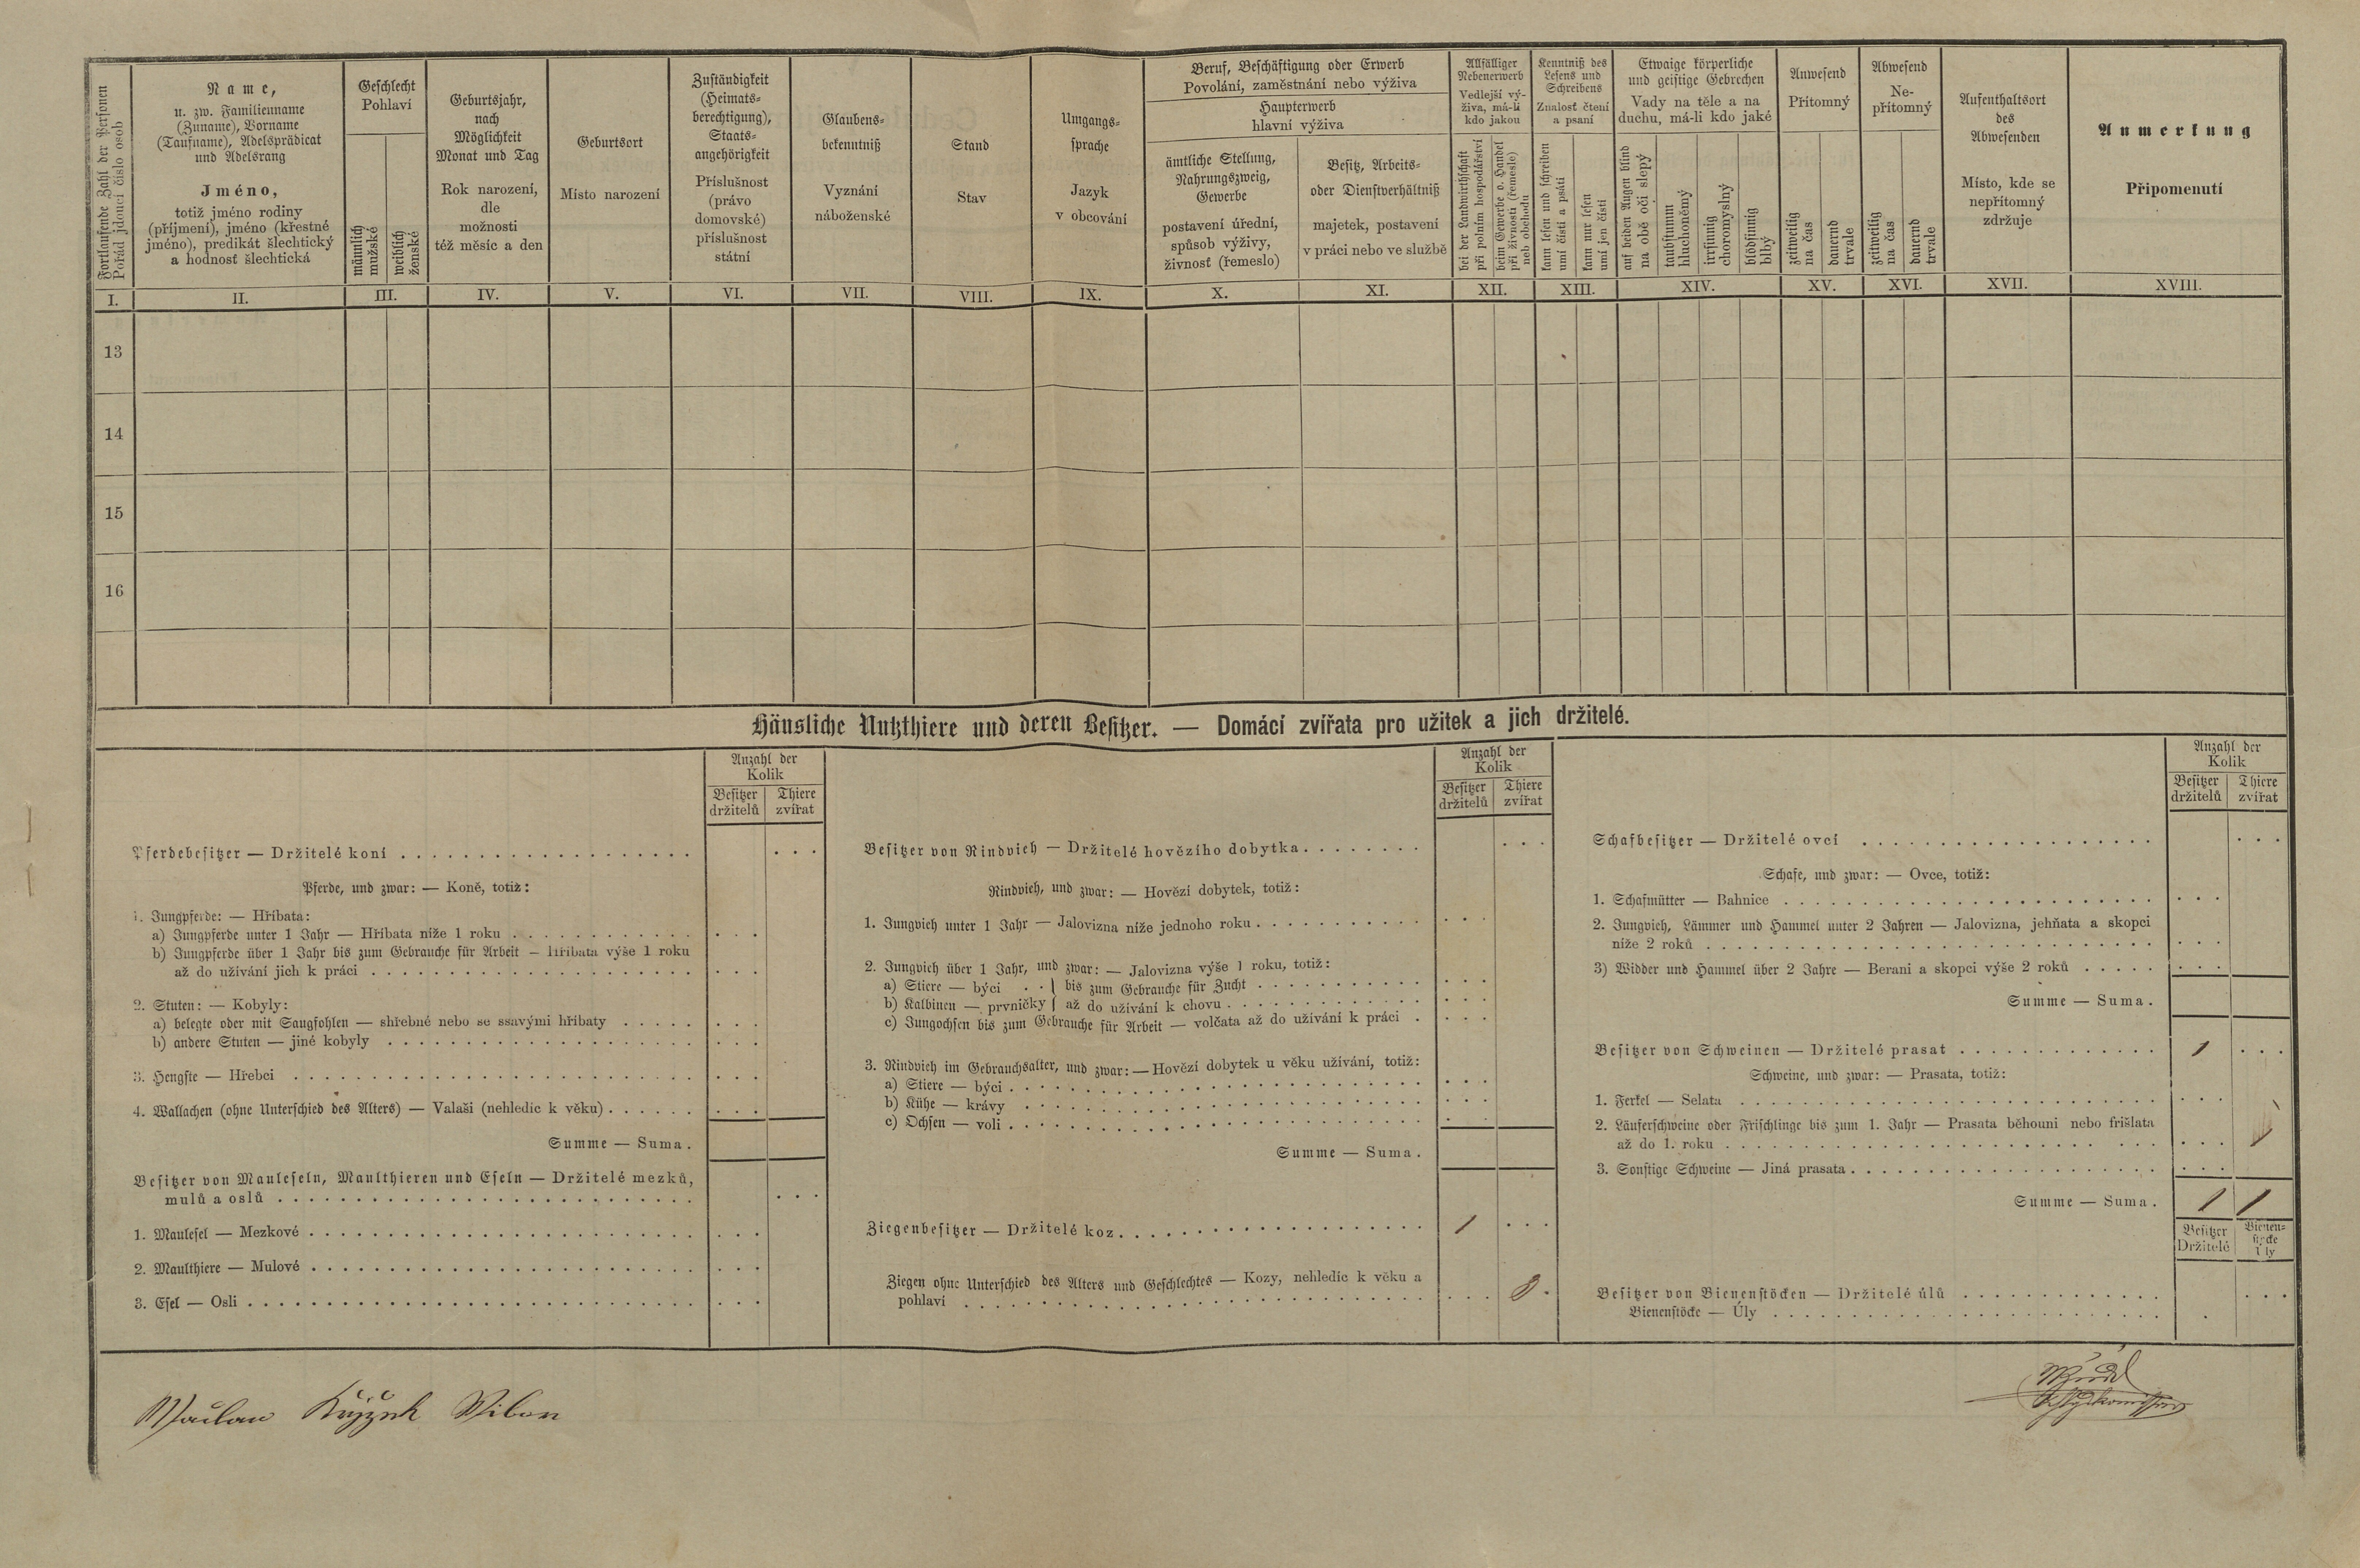 Fortlaufende Zahl der Personen
Pořád jdoucí číslo osob
Name,
u. zw. Familienname
(Zuname), Vorname
(Taufname), Adelsprädicat
und Adelsrang
Jméno,
totiž jméno rodiny
(příjmení), jméno (křestné
jméno), predikát šlechtický
a hodnosť šlechtická
Geschlecht
Pohlaví
männlich
mužské
weiblich
ženské
Geburtsjahr,
nach
Möglichkeit
Monat und Tag
Rok narození,
dle
možnosti
též měsíc a den
Geburtsort
Místo narození
Zuständigkeit
(Heimats-
berechtigung),
Staats-
angehörigkeit
Příslušnost
(právo
domovské)
příslušnost
státní
Glaubens-
bekenntniß
Vyznání
náboženské
Stand
Stav
Umgangs-
sprache
Jazyk
v obcování
Beruf, Beschäftigung oder Erwerb
Povolání, zaměstnání nebo výživa
Haupterwerb
hlavní výživa
ämtliche Stellung,
Nahrungszweig,
Gewerbe
postavení úřední,
spůsob výživy,
živnosť (řemeslo)
Besitz, Arbeits-
oder Dienstverhältniß
majetek, postavení
v práci nebo ve službě
Allfälliger
Nebenerwerb
Vedlejší vý-
živa, má-li
kdo jakou
bei der Landwirthschaft
při polním hospodářství
beim Gewerbe o. Handel
při živnosti (řemesle)
neb obchodu
Kenntniß des
Lesens und
Schreibens
Znalosť čtení
a psaní
kann lesen und schreiben
umí čísti a psáti
kann nur lesen
umí jen čísti
Etwaige körperliche
und geistige Gebrechen
Vady na těle a na
duchu, má-li kdo jaké
auf beiden Augen blind
na obě oči slepý
taubstumm
hluchoněmý
irrsinnig
choromyslný
blödsinnig
blbý
Anwesend
Přítomný
zeitweilig
na čas
dauernd
trvale
Abwesend
Ne-
přítomný
zeitweilig
na čas
dauernd
trvale
Aufenthaltsort
des
Abwesenden
Místo, kde se
nepřítomný
zdržuje
Anmerkung
Připomenutí
I. II. III. IV. V. VI. VII. VIII. IX. X. XI. XII. XIII. XIV. XV. XVI. XVII. XVIII.
13
14
15
16
Häusliche Nutzthiere und deren Besitzer. — Domácí zvířata pro užitek a jich držitelé.
Anzahl der
Kolik
Besitzer
držitelů
Thiere
zvířat
Pferdebesitzer — Držitelé koní
Pferde, und zwar: — Koně, totiž:
1. Jungpferde: — Hříbata:
a) Jungpferde unter 1 Jahr — Hříbata níže 1 roku
b) Jungpferde über 1 Jahr bis zum Gebrauche für Arbeit — Hříbata výše 1 roku
až do užívání jich k práci
2. Stuten: — Kobyly:
a) belegte oder mit Saugfohlen — shřebné nebo se ssavými hříbaty
b) andere Stuten — jiné kobyly
3. Hengste — Hřebci
4. Wallachen (ohne Unterschied des Alters) — Valaši (nehledíc k věku)
Summe — Suma.
Besitzer von Mauleseln, Maulthieren und Eseln — Držitelé mezků,
mulů a oslů
1. Maulesel — Mezkové
2. Maulthiere — Mulové
3. Esel — Osli
Anzahl der
Kolik
Besitzer
držitelů
Thiere
zvířat
Besitzer von Rindvieh — Držitelé hovězího dobytka
Rindvieh, und zwar: — Hovězí dobytek, totiž:
1. Jungvieh unter 1 Jahr — Jalovizna níže jednoho roku
2. Jungvieh über 1 Jahr, und zwar: — Jalovizna výše 1 roku, totiž:
a) Stiere — býci . . } bis zum Gebrauche für Zucht
b) Kalbinen — prvničky } až do užívání k chovu
c) Jungochsen bis zum Gebrauche für Arbeit — volčata až do užívání k práci
3. Rindvieh im Gebrauchsalter, und zwar: — Hovězí dobytek u věku užívání, totiž:
a) Stiere — býci
b) Kühe — krávy
c) Ochsen — voli
Summe — Suma.
Ziegenbesitzer — Držitelé koz 1
Ziegen ohne Unterschied des Alters und Geschlechtes — Kozy, nehledíc k věku a
pohlaví
Anzahl der
Kolik
Besitzer
držitelů
Thiere
zvířat
Schafbesitzer — Držitelé ovcí
Schafe, und zwar: — Ovce, totiž:
1. Schafmütter — Bahnice
2. Jungvieh, Lämmer und Hammel unter 2 Jahren — Jalovizna, jehňata a skopci
níže 2 roků
3) Widder und Hammel über 2 Jahre — Berani a skopci výše 2 roků
Summe — Suma.
Besitzer von Schweinen — Držitelé prasat 1
Schweine, und zwar: — Prasata, totiž:
1. Ferkel — Selata
2. Läuferschweine oder Frischlinge bis zum 1. Jahr — Prasata běhouni nebo frišlata
až do 1. roku 1
3. Sonstige Schweine — Jiná prasata
Summe — Suma. 1 1
Besitzer
Držitelé
Bienen-
stöcke
Úly
Besitzer von Bienenstöcken — Držitelé úlů
Bienenstöcke — Úly